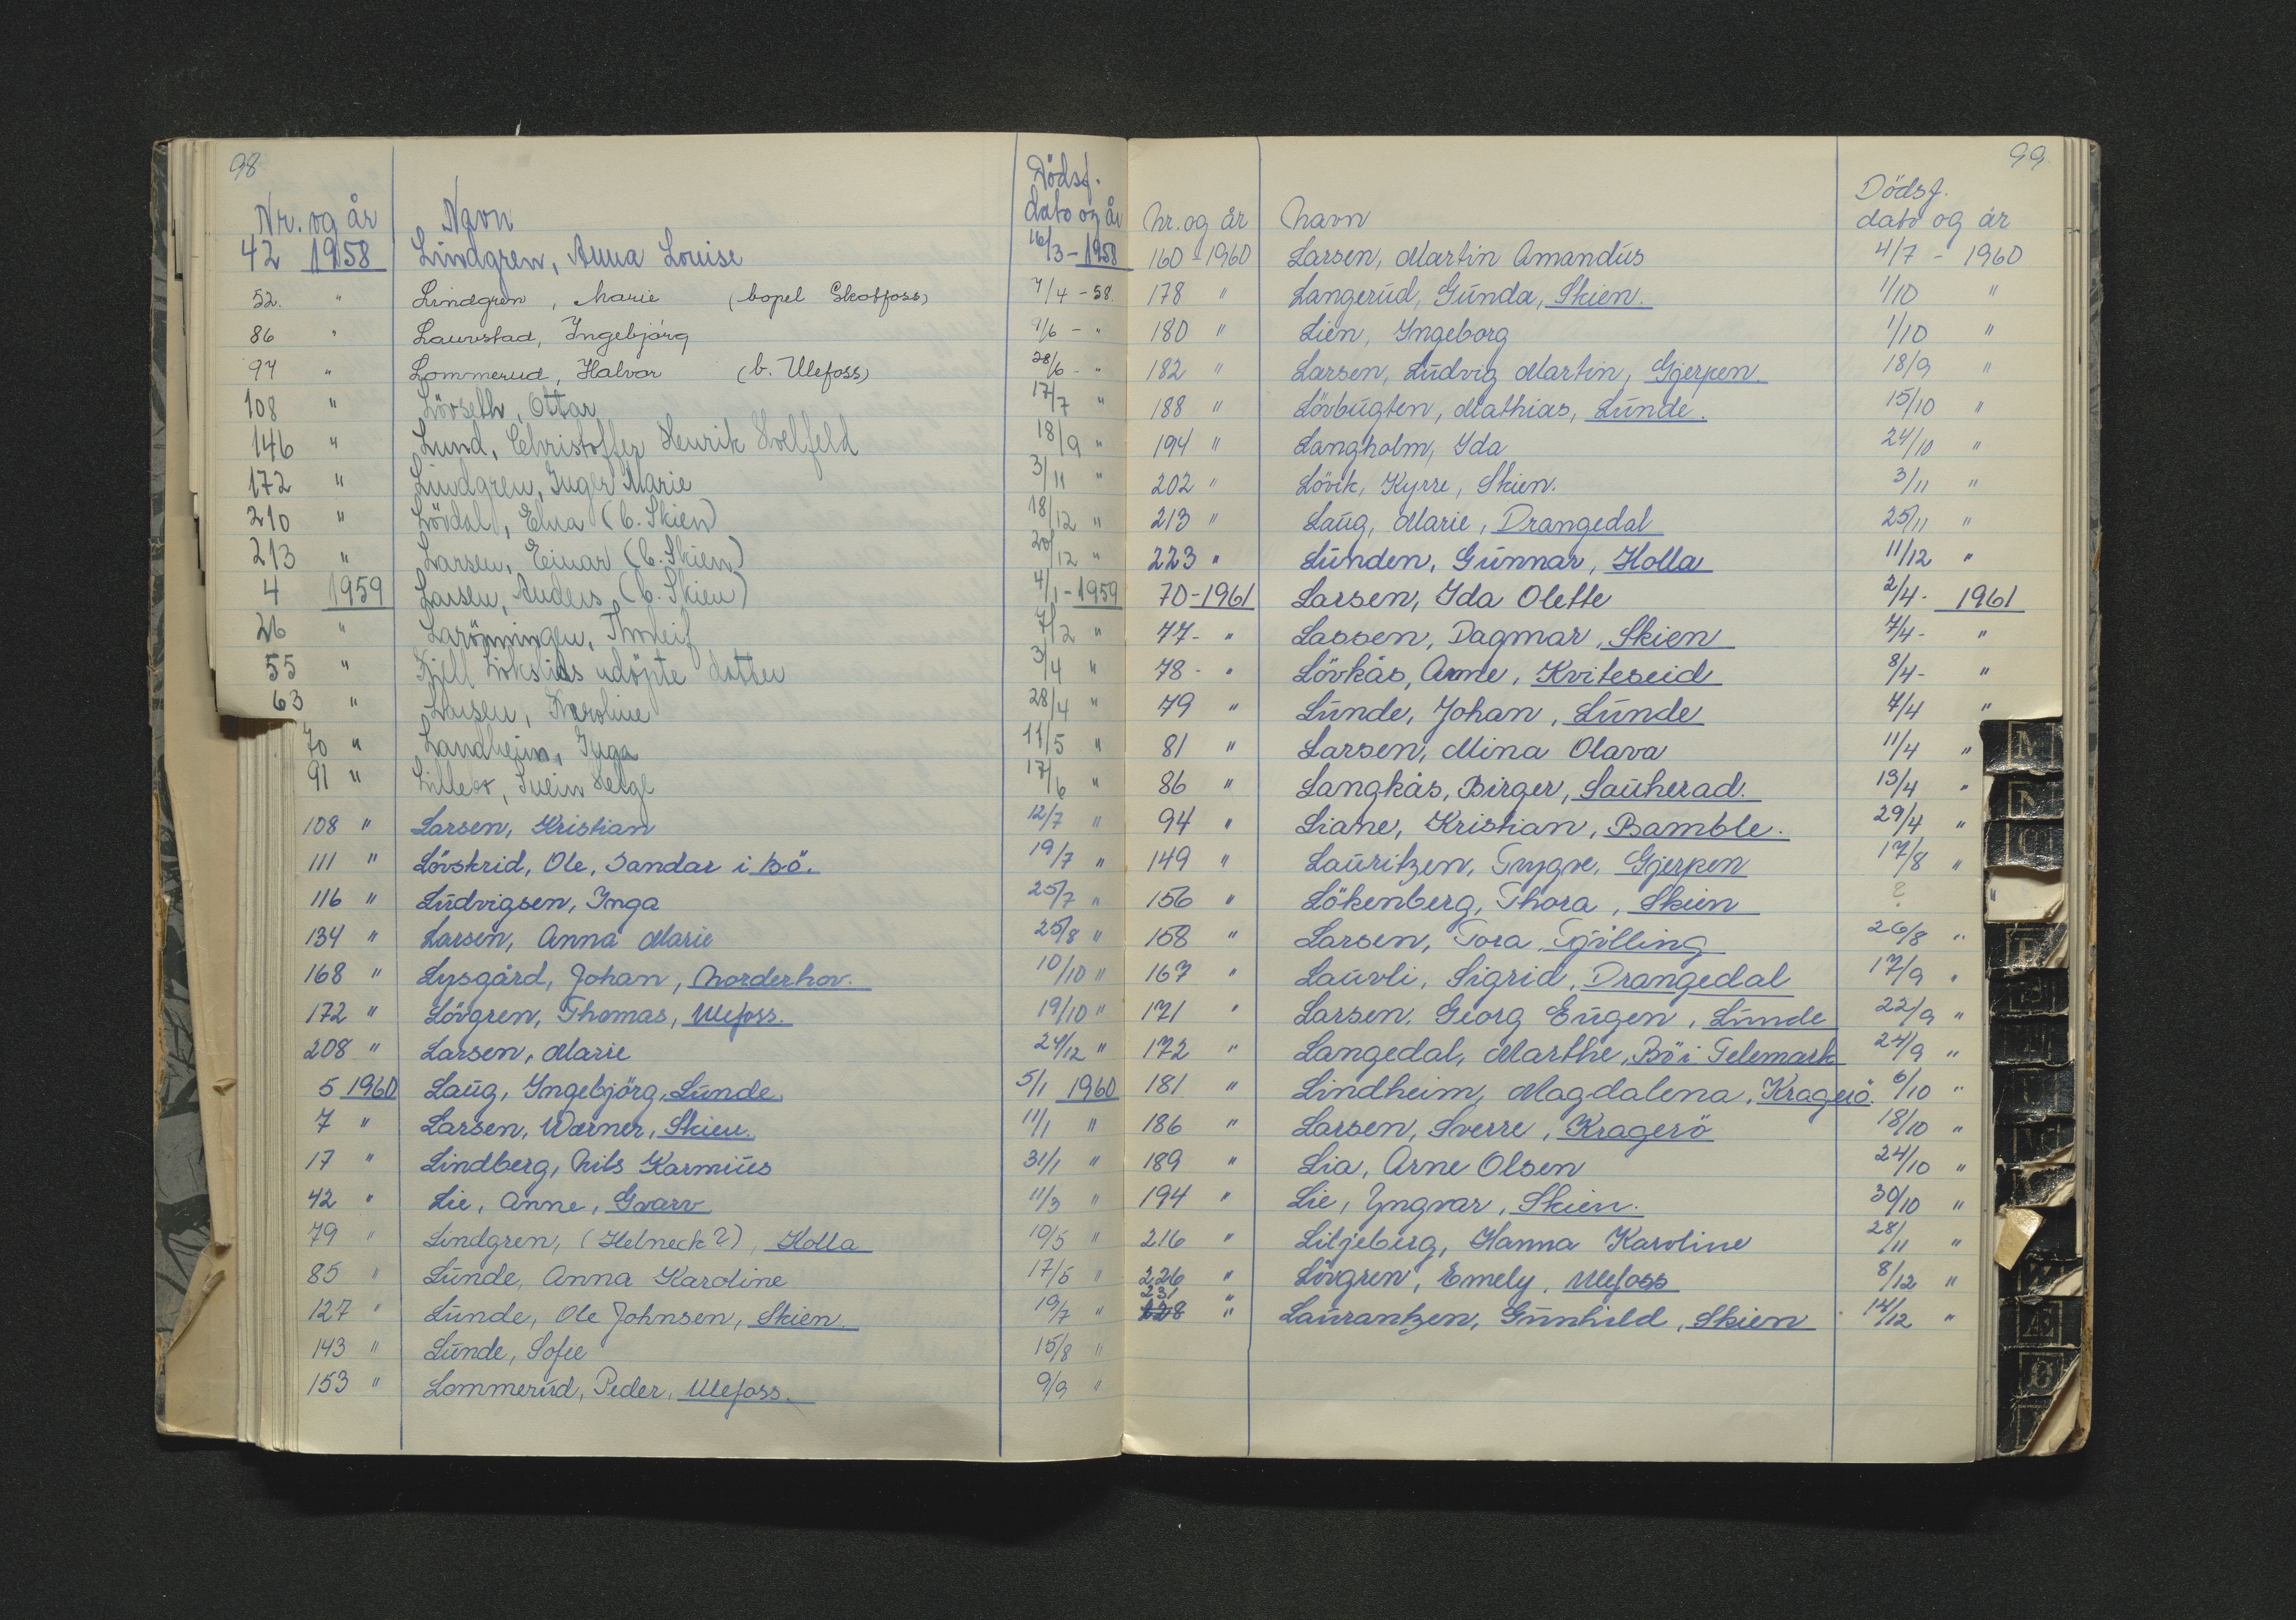 98
Nr. og år Navn Dödsf. dato og år
42 1958 Lindgren, Anna Louise 16/3 - 1958
52. " Lindgren, Marie (bopel Skotfoss) 7/4 - 58.
86 " Lauvstad, Ingebjörg 9/6 - "
97 " Lommerud, Halvor (b. Ulefoss) 28/6 - "
108 " Lövseth, Ottar 17/7 "
146 " Lund, Christoffer Henrik 18/9 "
172 " Lindgren, Inger Marie 3/11 "
210 " Lövdal, Elna (b. Skien) 18/12 "
213 " Larsen, Einar (b. Skien) 20/12 "
4 1959 Larsen, Anders (b. Skien) 4/1 - 1959
26 " Larönningen, Thorleif 7/2 "
55 " Kjell udöpte datter 3/4 "
63 " Larsen, Karoline 28/4 "
70 " Landheim, Inga 11/5 "
91 " Svein Helge 17/6 "
108 " Larsen, Kristian 12/7 "
111 " Lövskrid, Ole, Sandar i Bö. 19/7 "
116 " Ludvigsen, Inga 25/7 "
134 " Larsen, Anna Marie 25/8 "
168 " Lysgård, Johan, Norderhov. 10/10 "
172 " Lövgren, Thomas, Ulefoss. 19/10 "
208 " Larsen, Marie 24/12 "
5 1960 Laug, Ingebjörg, Lunde. 5/1 1960
7 " Larsen, Werner, Skien. 11/1 "
17 " Lindberg, Nils Karmius 31/1 "
42 " Lie, Anne, Gvarv 11/3 "
79 " Lindgren, (Helneck?), Holla 10/5 "
85 " Lunde, Anna Karoline 17/5 "
127 " Lunde, Ole Johnsen, Skien. 19/7 "
143 " Lunde, Sofie 15/8 "
153 " Lommerud, Peder, Ulefoss. 9/9 "
99
Nr. og år Navn Dödsf. dato og år
160 - 1960 Larsen, Martin Amandus 4/7 - 1960
178 " Langerud, Gunda, Skien. 1/10 "
180 " Lien, Ingeborg 1/10 "
182 " Larsen, Ludvig Martin, Gjerpen. 18/9 "
188 " Lövbugten, Mathias, Lunde. 15/10 "
194 " Langholm, Ida 24/10 "
202 " Lövik, Kyrre, Skien. 3/11 "
213 " Laug, Marie, Drangedal 25/11 "
223 " Lunden, Gunnar, Holla 11/12 "
70 - 1961 Larsen, Ida Olette 2/4 - 1961
77 - " Lassen, Dagmar, Skien 7/4 - "
78 - " Lövkås, Anne, Kviteseid 8/4 - "
79 " Lunde, Johan, Lunde 7/4 "
81 " Larsen, Mina Olava 11/4 "
86 " Langkås, Birger, Sauherad. 13/4 "
94 " Liane, Kristian, Bamble. 29/4 "
149 " Lauritzen, Trygve, Gjerpen 17/8 "
156 " Lökenberg, Thora, Skien ? "
158 " Larsen, Tora, Tjölling 26/8 "
167 " Lauvli, Sigrid, Drangedal 17/9 "
171 " Larsen, Georg Eugen, Lunde 22/9 "
172 " Langedal, Marthe, Bö i Telemark 24/9 "
181 " Lindheim, Magdalena, Kragerö. 6/10 "
186 " Larsen, Sverre, Kragerö 18/10 "
189 " Lia, Arne Olsen 24/10 "
194 " Lie, Yngvar, Skien. 30/10 "
216 " Liljeberg, Hanna Karoline 28/11 "
226 " Lövgren, Emely, Ulefoss 8/12 "
231 " Laurantzen, Gunhild, Skien 14/12 "
M
N
O
P
Æ
Ø